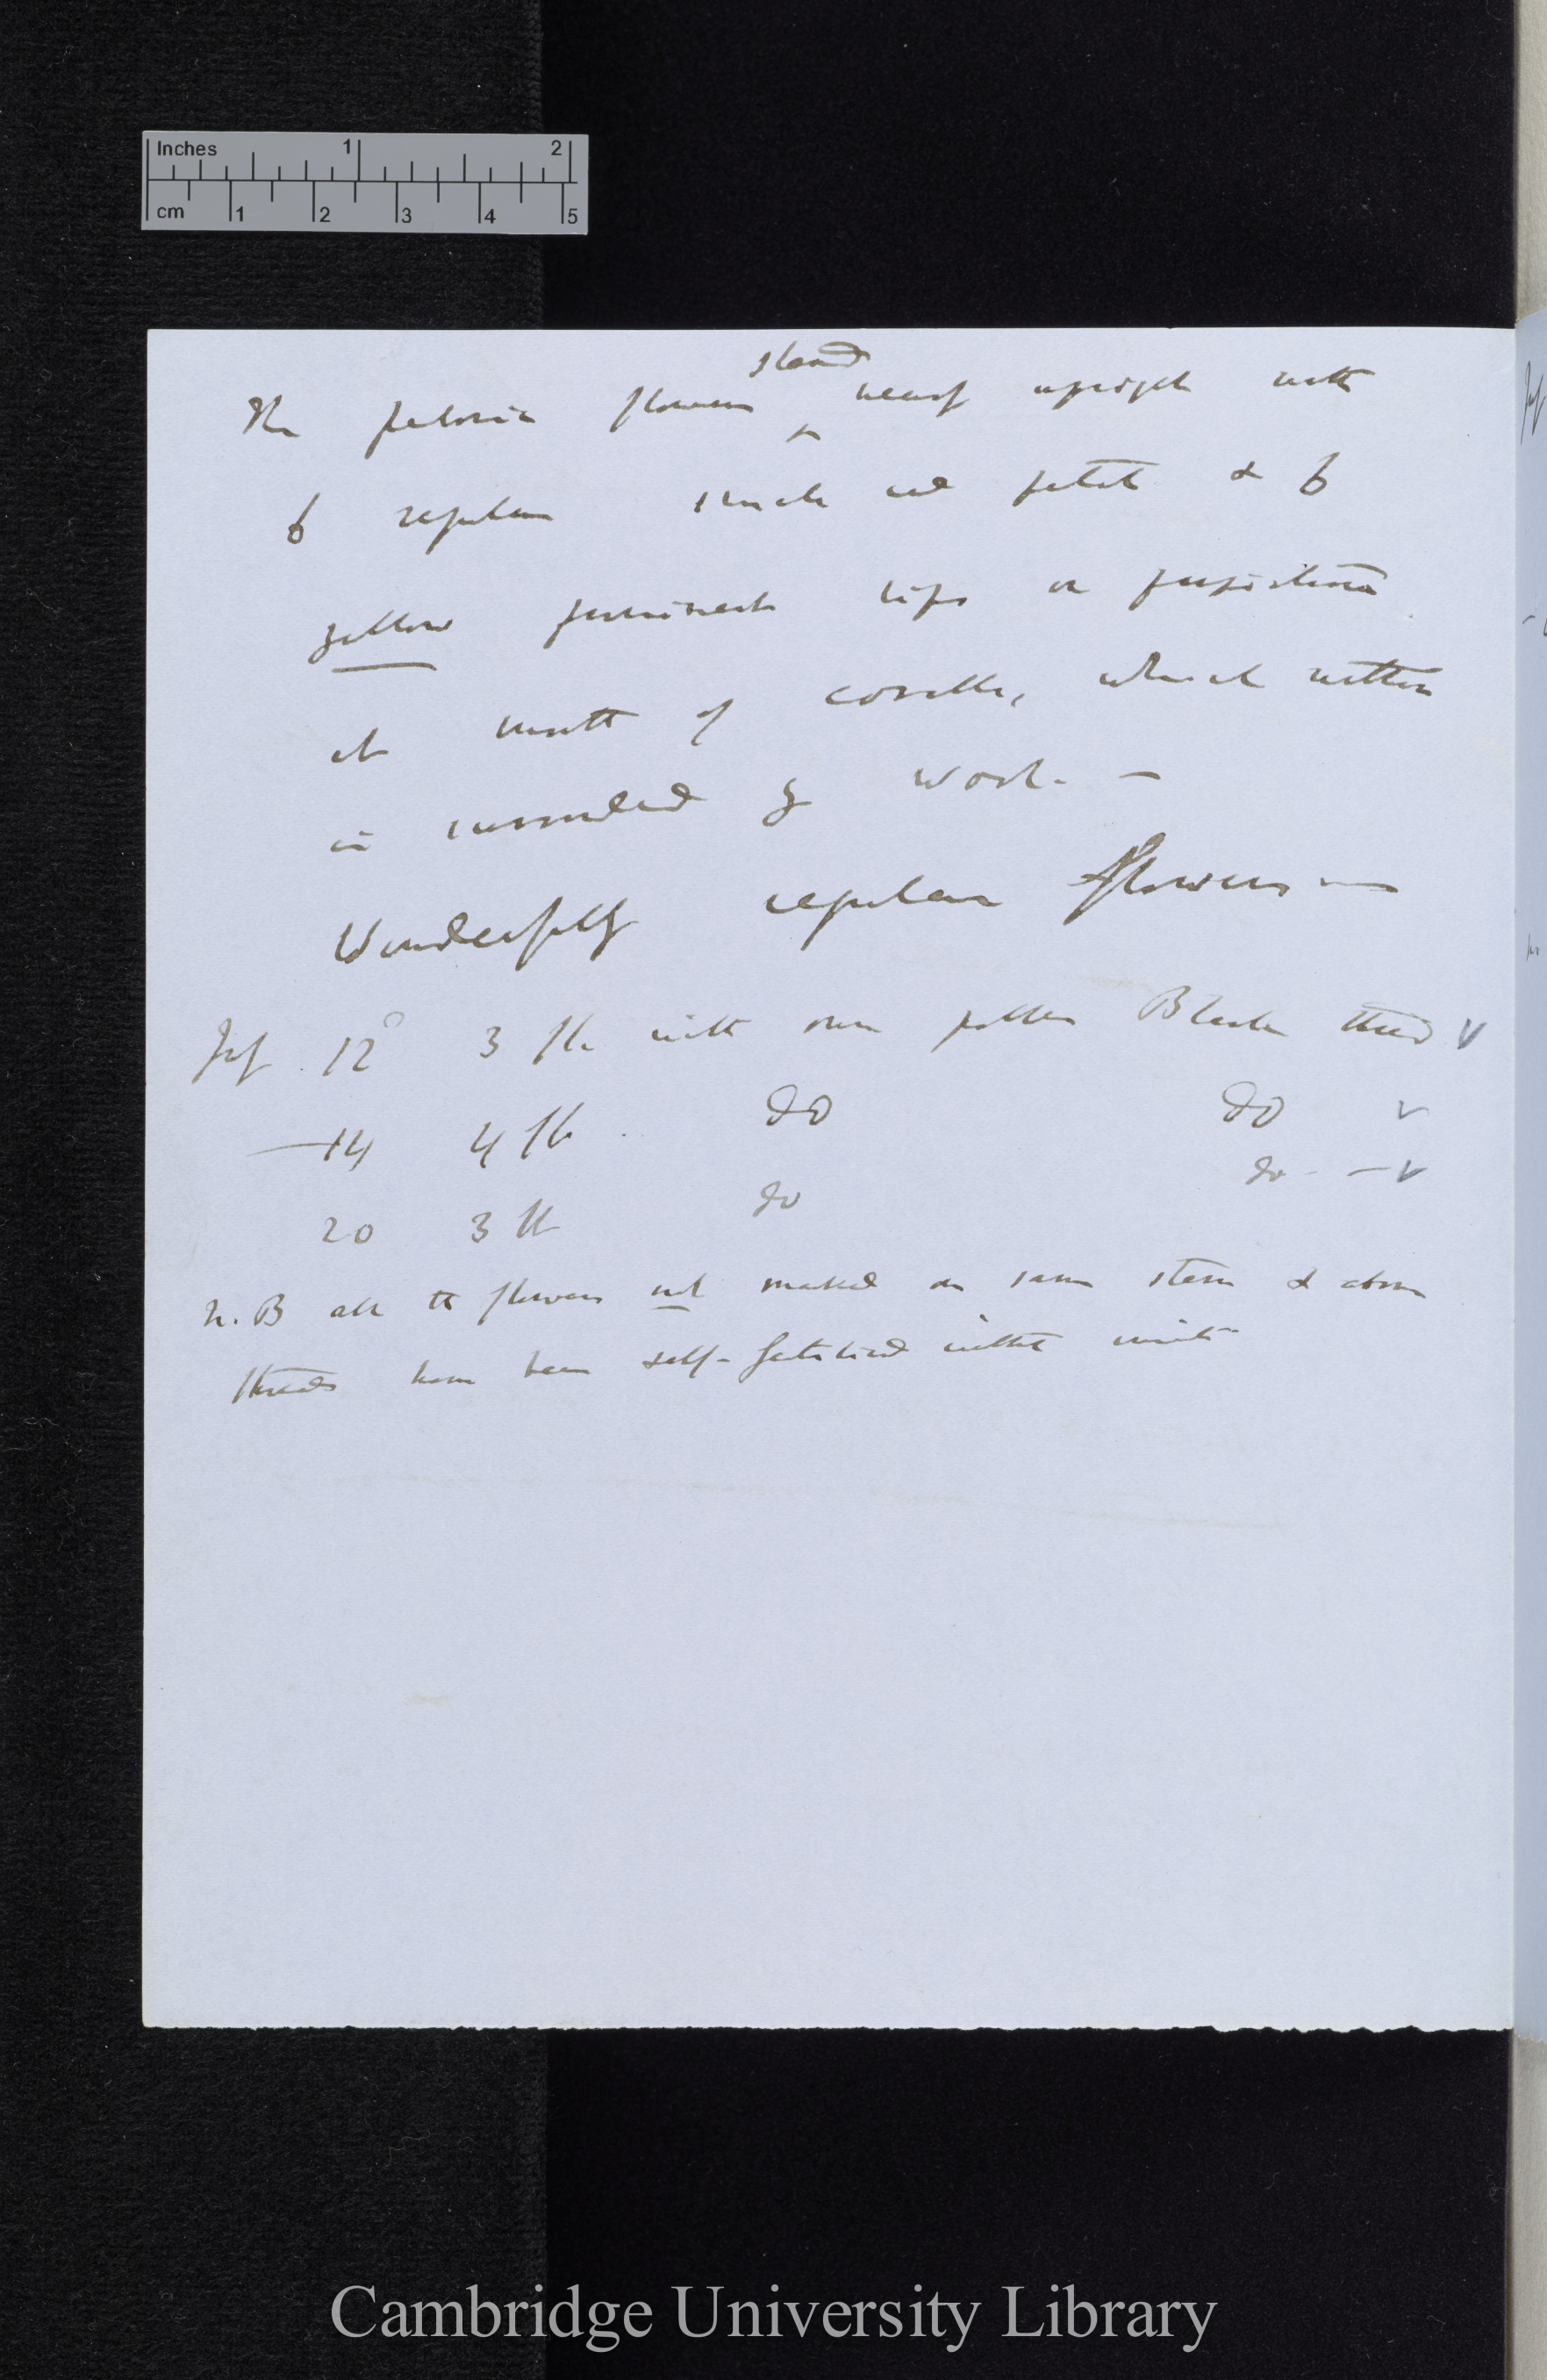 Inches 1 2
cm 1 2 3 4 5
stand
The peloric flowers ^ nearly upright with
6 regular small red petals & 6
yellow prominent lips or projections
at mouth of corolla, which within
is surrounded by wool. —
Wonderfully regular flowers —
July 12° 3 fl. with own pollen Black thread v
— 14 4 fl. do do v
20 3 fl do do — v
N.B all the flowers not marked on same stem & above
threads have been self-fertilised without
Cambridge University Library